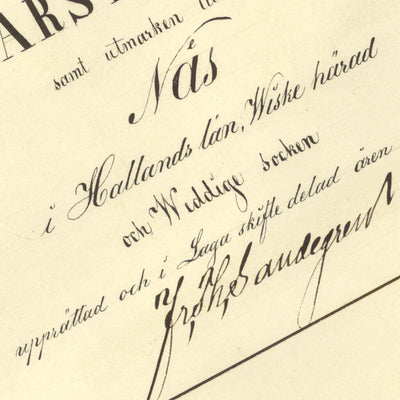 ARS
samt utmarken
Nås
i Hallands län, Wiske härad
och Weddige socken
upprättad och i Laga skifte delad åren
Sandegren